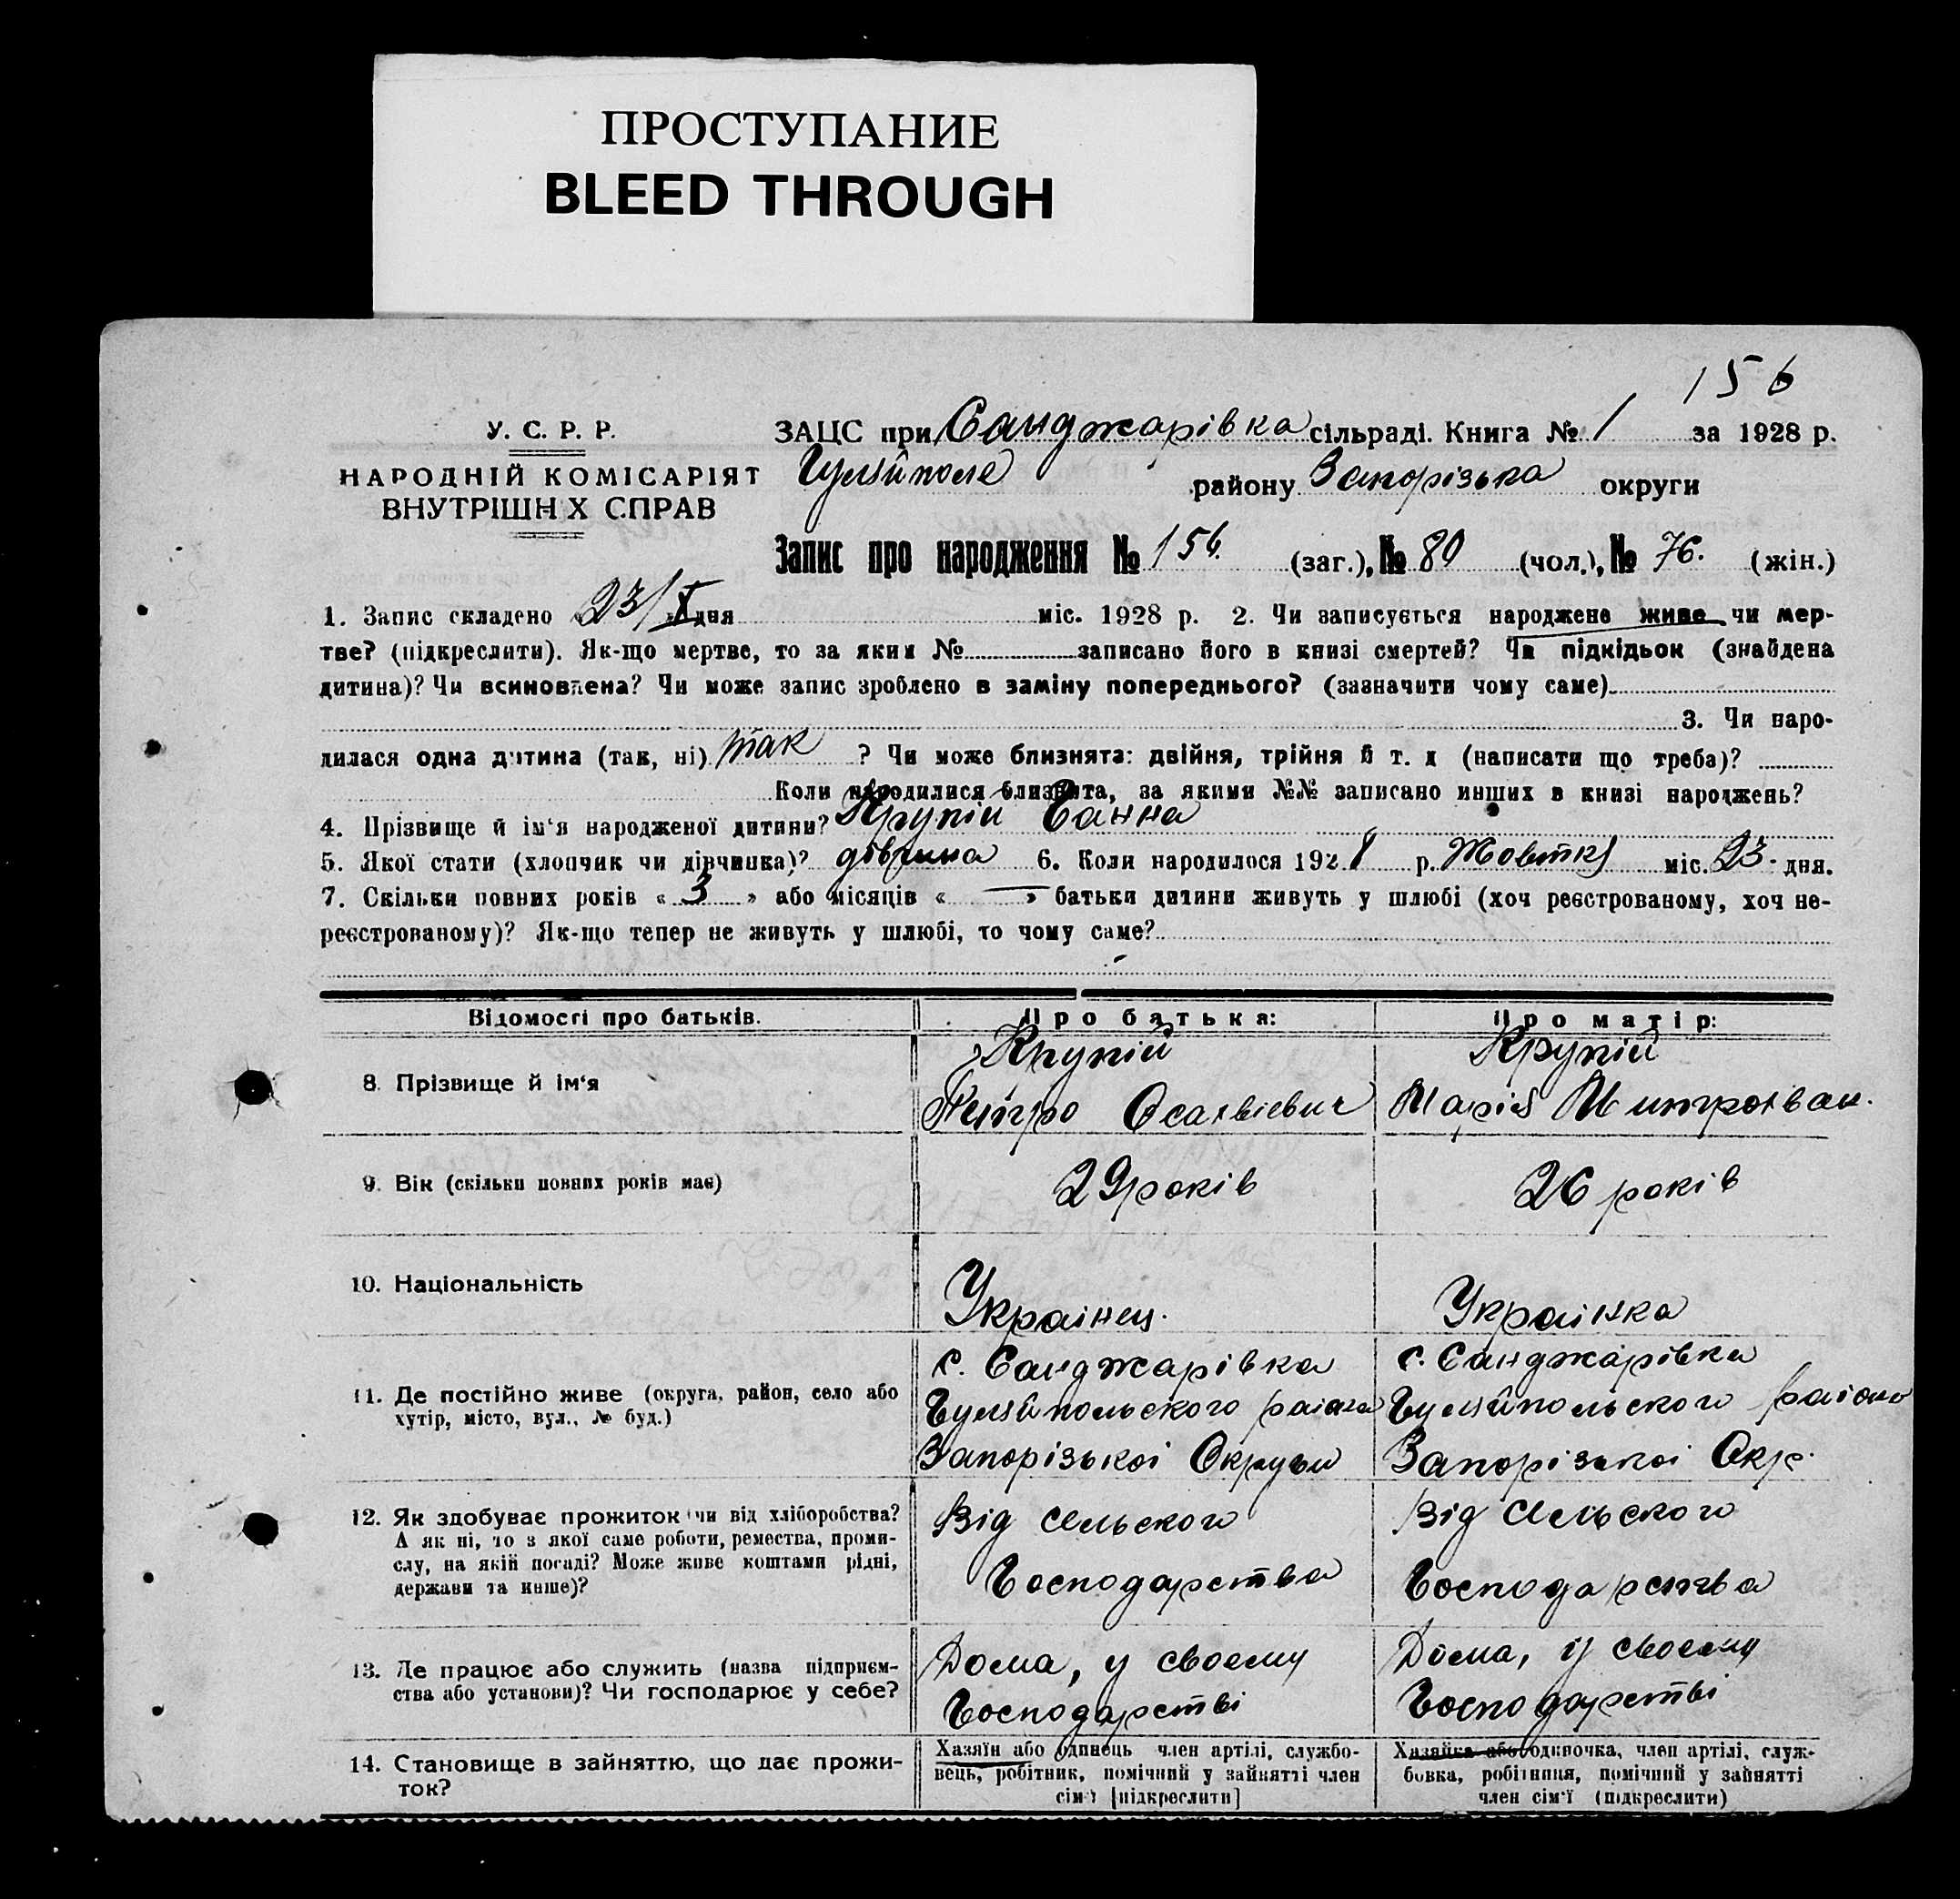 ПРОСТУПАНИЕ
BLEED THROUGH
156
У. С. Р. Р.
НАРОДНІЙ КОМІСАРІЯТ
ВНУТРІШН Х СПРАВ
ЗАЦС при Санджарівка сільраді. Книга № 1 за 1928 р.
Гуляйполе району Запорізька округи
Запис про народження № 156. (заг.), № 80 (чол.), № 76. (жін.)
1. Запис складено «23/X» дня міс. 1928 р. 2. Чи записується народжене живе чи мер-
тве? (підкреслити). Як-що мертве, то за яким № записано його в книзі смертей? Чи підкідьок (знайдена
дитина)? Чи всиновлена? Чи може запис зроблено в заміну попереднього? (зазначити чому саме)
3. Чи наро-
дилася одна дитина (так, ні) так ? Чи може близнята: двійня, трійня й т. д (написати що треба)?
Коли народилися близнята, за якими №№ записано инших в книзі народжень?
4. Прізвище й ім'я народженої дитини? Крупій Ганна
5. Якої стати (хлопчик чи дівчинка)? дівчина 6. Коли народилося 1928 р. Жовтня міс. 23 дня.
7. Скільки повних років « 3 » або місяців « — » батьки дитини живуть у шлюбі (хоч реєстрованому, хоч не-
реєстрованому)? Як-що тепер не живуть у шлюбі, то чому саме?
Відомості про батьків. Про батька: Про матір:
8. Прізвище й ім'я
Крупій
Петро
Крупій
Марія Митрохван.
9. Вік (скільки повних років має)
29 років
26 років
10. Національність
Українец.
Українка
11. Де постійно живе (округа, район, село або
хутір, місто, вул., № буд.)
с. Санджарівка
Гуляйпольского раіона
Запорізькоі Округи
с. Санджарівка
Гуляйпольского раіона
Запорізькоі Окр.
12. Як здобуває прожиток чи від хліборобства?
А як ні, то з якої саме роботи, ремества, проми-
слу, на якій посаді? Може живе коштами рідні,
держави та инше)?
Від сельского
Господарства
Від сельского
Господарства
13. Де працює або служить (назва підприєм-
ства або установи)? Чи господарює у себе?
Дома, у своему
Господарстві
Дома, у своему
Господарстві
14. Становище в зайняттю, що дає прожи-
ток?
Хазяїн або одинець член артілі, службо-
вець, робітник, помічний у зайнятті член
сім'ї [підкреслити]
Хазяйка або одиночка, член артілі, служ-
бовка, робітниця, помічний у зайнятті
член сім'ї (підкреслити)